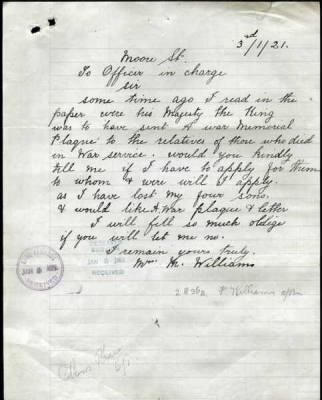 3rd/1/21.
Moore St.
To Officer in charge
sir
some time ago I read in the
paper were his Majesty the King
was to have sent A war Memorial
Plaque to the relatives of those who died
in War service. would you kindly
till me if I have to apply for them
to whom & were will I apply.
as I have lost my four sons.
& would like A War plaque & letter
I will fell so much oblige
if you will let me no.
I remain yours truly.
Mrs M. Williams
JAN 6 1921
RECEIVED
Williams